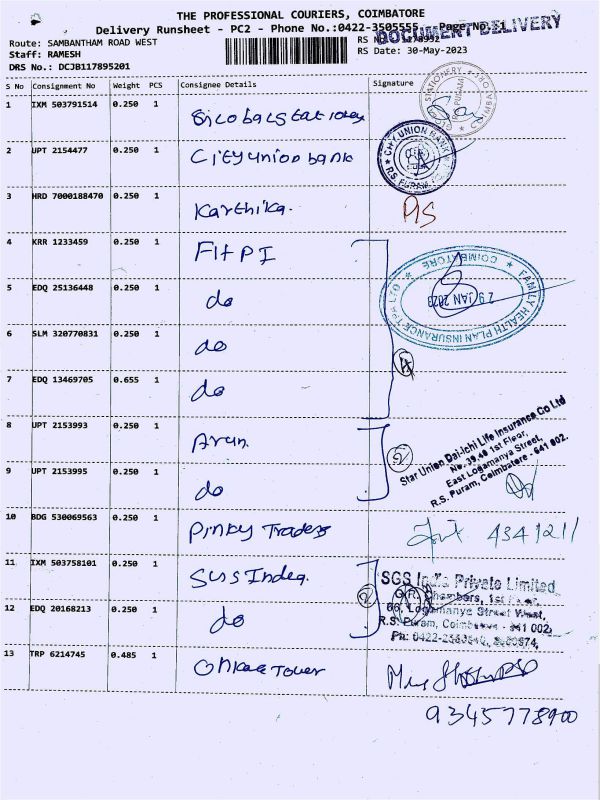 THE PROFESSIONAL COURIERS, COIMBATORE
Delivery Runsheet - PC2 - Phone No.:0422-3505555 Page No. 1
DOCUMENT DELIVERY
Route: SAMBANTHAM ROAD WEST
Staff: RAMESH
RS Date: 30-May-2023
DRS No.: DCJB117895201
S No Consignment No Weight PCS Consignee Details Signature
1 IXM 503791514 0.250 1
2 UPT 2154477 0.250 1 City union bank
CITY UNION BANK
R.S. PURAM
3 HRD 7000188470 0.250 1 Karthika.
4 KRR 1233459 0.250 1 FHPI
FAMILY HEALTH PLAN INSURANCE TPA LTD
COIMBATORE
29 JAN
5 EDQ 25136448 0.250 1 do
6 SLM 320770831 0.250 1 do
7 EDQ 13469705 0.655 1 do
4
8 UPT 2153993 0.250 1 Arun.
2
Star Union Dai-ichi Life Insurance Co Ltd
No. 39,40 1st Floor,
East Logamanya Street,
R.S. Puram, Coimbatore - 641 002.
9 UPT 2153995 0.250 1 do
10 BDG 530069563 0.250 1 Pinky Traders
11 IXM 503758101 0.250 1
2
SGS India Private Limited
Chambers, 1st Floor,
66, Logamanya Street West,
R.S. Puram, Coimbatore - 641 002
12 EDQ 20168213 0.250 1 do
13 TRP 6214745 0.485 1